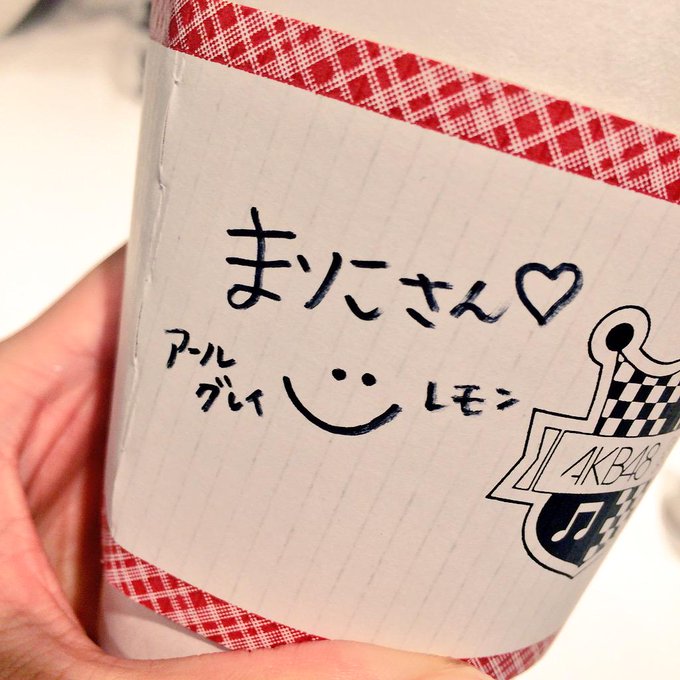 まりこさん♡
アール
グレイ
レモン
AKB48